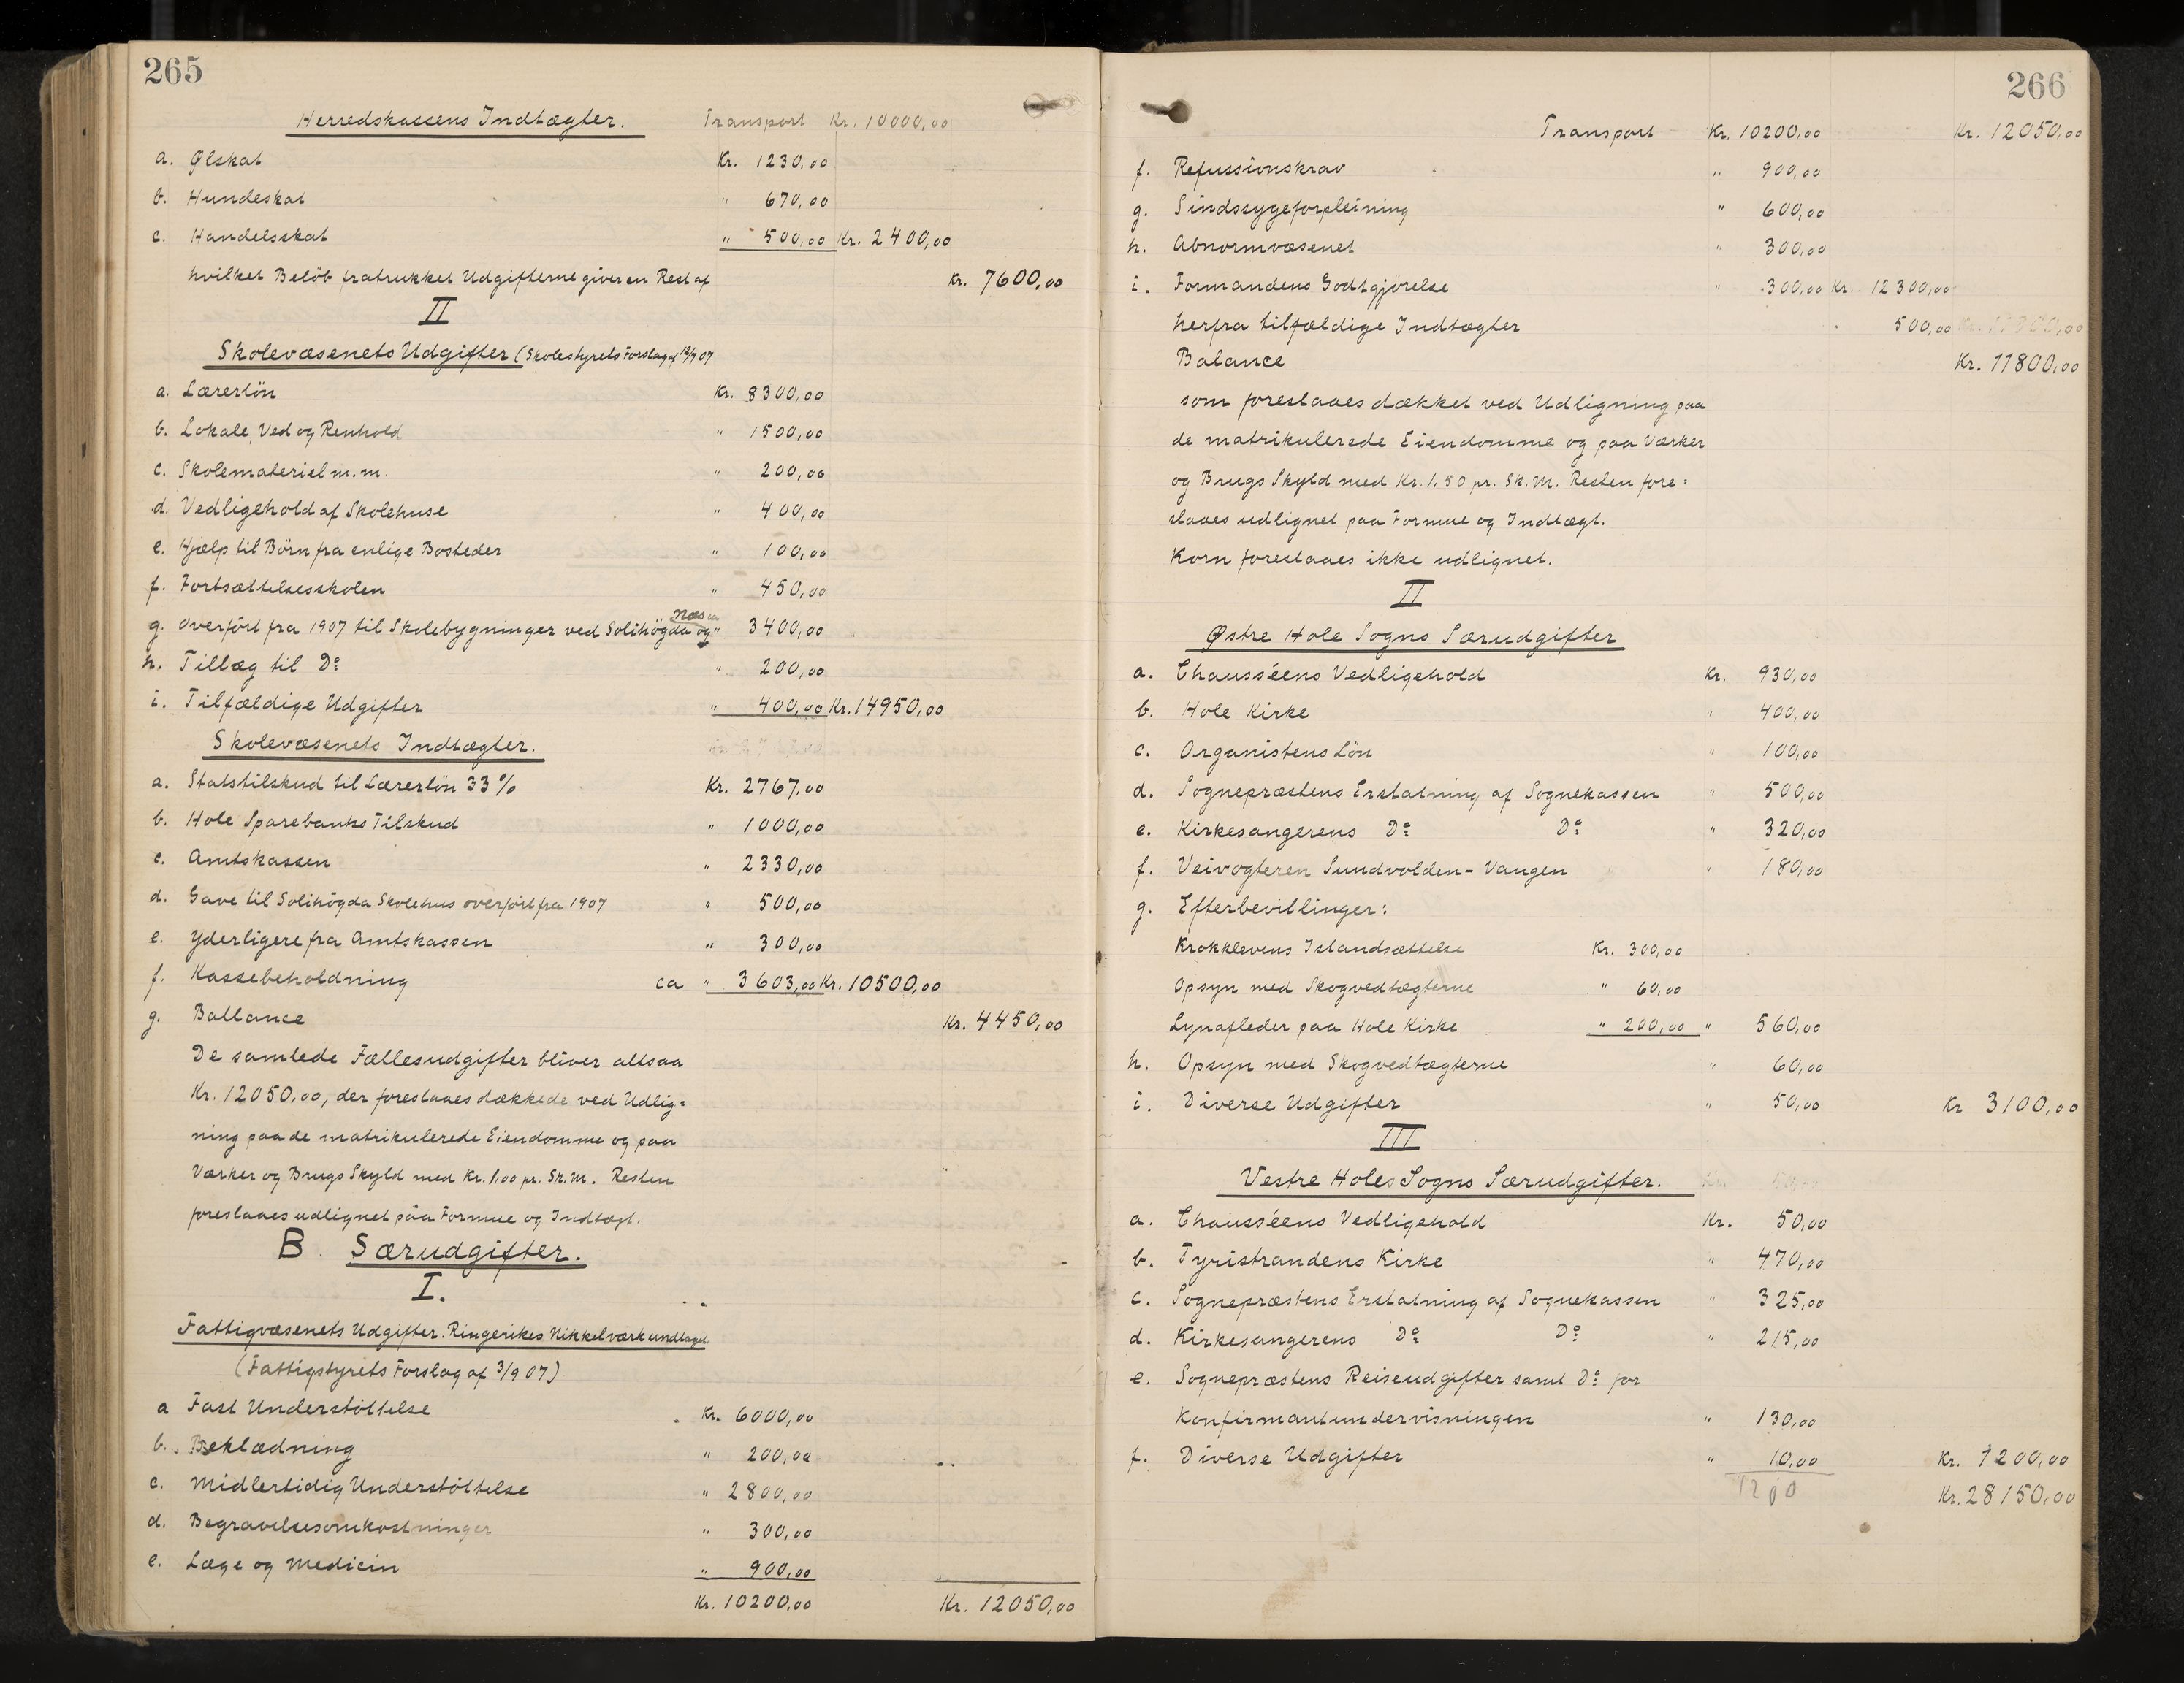 265
Herredskassens Indtægter. Transport Kr. 10000,00
a. Ølskat Kr. 1230,00
b. Hundeskat " 670,00
c. Handelsskat " 500,00 Kr. 2400,00
hvilket Beløb fratrukket Udgifterne giver en Rest af Kr. 7600,00
II
Skolevæsenets Udgifter (Skolestyrets Forslag af 13/7 07
a. Lærerlön Kr. 8300,00
b. Lokale, Ved og Renhold " 1500,00
c. Skolemateriel m.m. " 200,00
d. Vedligehold af Skolehuse " 400,00
e. Hjælp til Börn fra enlige Bosteder " 100,00
f. Fortsættelsesskolen " 450,00
g. Overfört fra 1907 til Skolebygninger ved Solihögda og Næs " 3400,00
h. Tillæg til Do " 200,00
i. Tilfældige Udgifter " 400,00 Kr. 14950,00
Skolevæsenets Indtægter.
a. Statstilskud til Lærerlön 33% Kr. 2767,00
b. Hole Sparebanks Tilskud " 1000,00
c. Amtskassen " 2330,00
d. Gave til Solihögda Skolehus overfört fra 1907 " 500,00
e. Yderligere fra Amtskassen " 300,00
f. Kassebeholdning ca " 3603,00 Kr. 10500,00
g. Ballance Kr. 4450,00
De samlede Fællesudgifter bliver altsaa
Kr. 12050,00, der foreslaaes dækkede ved Udlig=
ning paa de matrikulerede Eiendomme og paa
Værker og Brugs Skyld med Kr. 1,00 pr. Sk.M. Resten
foreslaaes udlignet paa Formue og Indtægt.
B. Særudgifter.
I.
Fattigvæsenets Udgifter. Ringerikes Nikkelværk undtaget
(Fattigstyrets Forslag af 3/9 07)
a Fast Understöttelse Kr. 6000,00
b. Beklædning " 200,00
c. Midlertidig Understöttelse " 2800,00
d. Begravelsesomkostninger " 300,00
e. Læge og Medicin " 900,00
Kr. 10200,00 Kr. 12050,00
266
Transport Kr. 10200,00 Kr. 12050,00
f. Refussionskrav " 900,00
g. Sindssygeforpleining " 600,00
h. Abnormvæsenet " 300,00
i. Formandens Godtgjörelse " 300,00 Kr. 12300,00
herfra tilfældige Indtægter 500,00
Balance Kr. 11800,00
som foreslaaes dækket ved Udligning paa
de matrikulerede Eiendomme og paa Værker
og Brugs Skyld med Kr. 1.50 pr. Sk.M. Resten fore=
slaaes udlignet paa Formue og Indtægt.
Korn foreslaaes ikke udlignet.
II
Østre Hole Sogns Særudgifter
a. Chausséens Vedligehold Kr. 930,00
b. Hole Kirke " 400,00
c. Organistens Lön " 100,00
d. Sognepræstens Erstatning af Sognekassen " 500,00
e. Kirkesangerens Do Do " 320,00
f. Veivogteren Sundvolden - Vangen " 180,00
g. Efterbevillinger:
Krokklevens Istandsættelse Kr. 300,00
Opsyn med Skogvedtægterne " 60,00
Lynafleder paa Hole Kirke " 200,00 " 560,00
h. Opsyn med Skogvedtægterne " 60,00
i. Diverse Udgifter " 50,00 Kr 3100,00
III
Vestre Holes Sogns Særudgifter.
a. Chausséens Vedligehold Kr. 50,00
b. Tyristrandens Kirke " 470,00
c. Sognepræstens Erstatning af Sognekassen " 325,00
d. Kirkesangerens Do Do " 215,00
e. Sognepræstens Reiseudgifter samt Do for
Konfirmantundervisningen " 130,00
f. Diverse Udgifter " 10,00 Kr. 1200,00
Kr. 28150,00